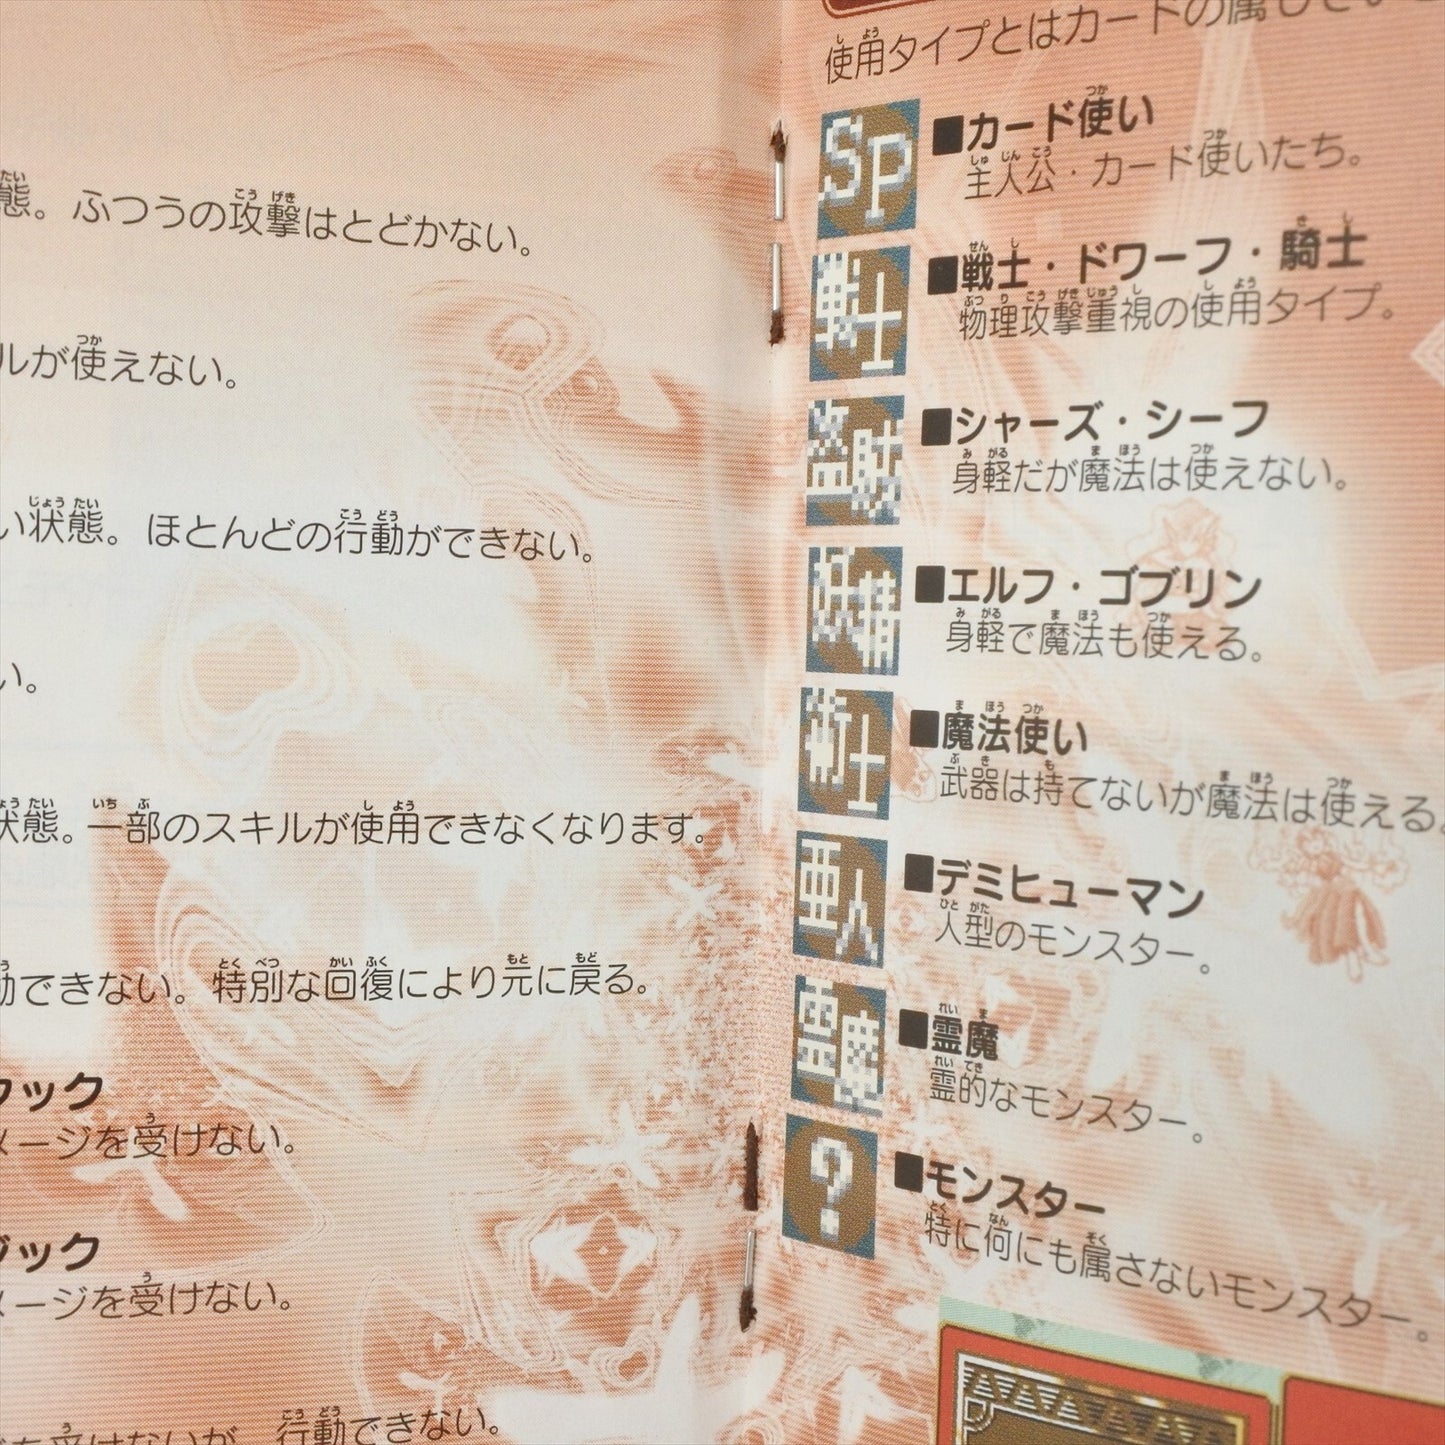 態。ふつうの攻撃はとどかない。
ルが使えない。
い状態。ほとんどの行動ができない。
い。
状態。一部のスキルが使用できなくなります。
動できない。特別な回復により元に戻る。
ック
メージを受けない。
ジック
メージを受けない。
行動できない。
使用タイプとはカードの属し
SP
■カード使い
主人公・カード使いたち。
戦士
■戦士・ドワーフ・騎士
物理攻撃重視の使用タイプ。
盗賊
■シャーズ・シーフ
身軽だが魔法は使えない。
妖精
■エルフ・ゴブリン
身軽で魔法も使える。
術士
■魔法使い
武器は持てないが魔法は使える。
亜人
■デミヒューマン
人型のモンスター。
霊魔
■霊魔
霊的なモンスター。
?
■モンスター
特に何にも属さないモンスター。